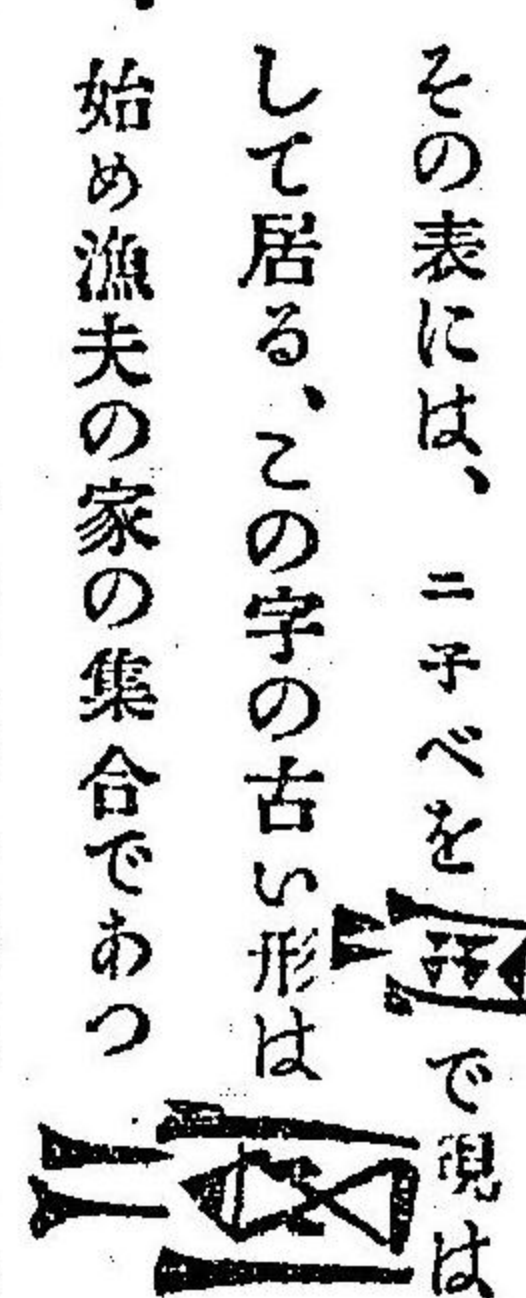 その表には、ニ子ベを で現は
して居る、この字の古い形は
始め漁夫の家の集合であつ